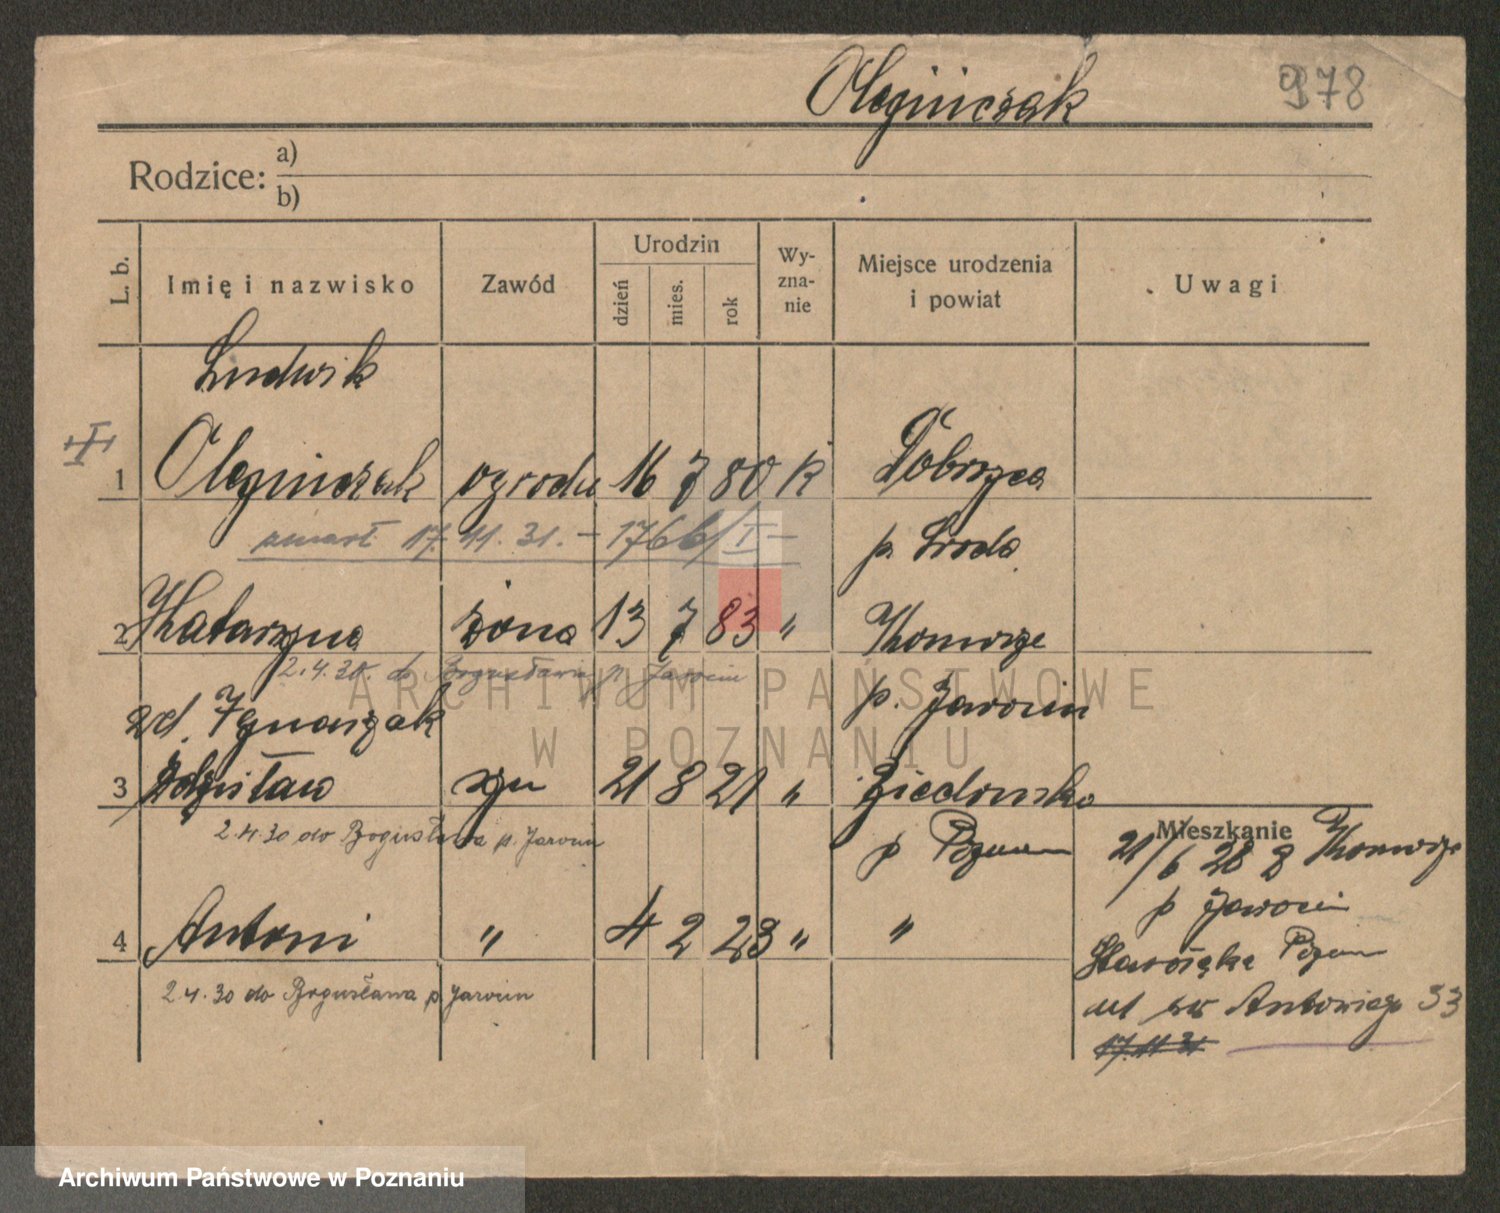 Olejniczak 978
Rodzice: a)
b)
L. b.
Imię i nazwisko
Zawód
Urodzin
dzień
mies.
rok
Wy-
zna-
nie
Miejsce urodzenia
i powiat
Uwagi
Ludwik
1 Olejniczak ogrodn 16 7 80 k Dobrzyca
zmarł 17.11.31. – 1766/I – p. Środa
2 Katarzyna żona 13 7 83 " Komorze
2.4.30. do Bogusławia p. Jarocin
zd. Ignaszak p. Jarocin
3 Zdzisław syn 21 8 21 "
2.4.30 do Bogusława p. Jarocin p Poznań
4 Antoni " 4 2 23 " "
2.4.30 do Bogusława p Jarocin
Mieszkanie
21/6 28 z Komorze
p Jarocin
Starołęka Pozn
ul św Antoniego 33
17.11 31
ARCHIWUM PAŃSTWOWE
W POZNANIU
Archiwum Państwowe w Poznaniu